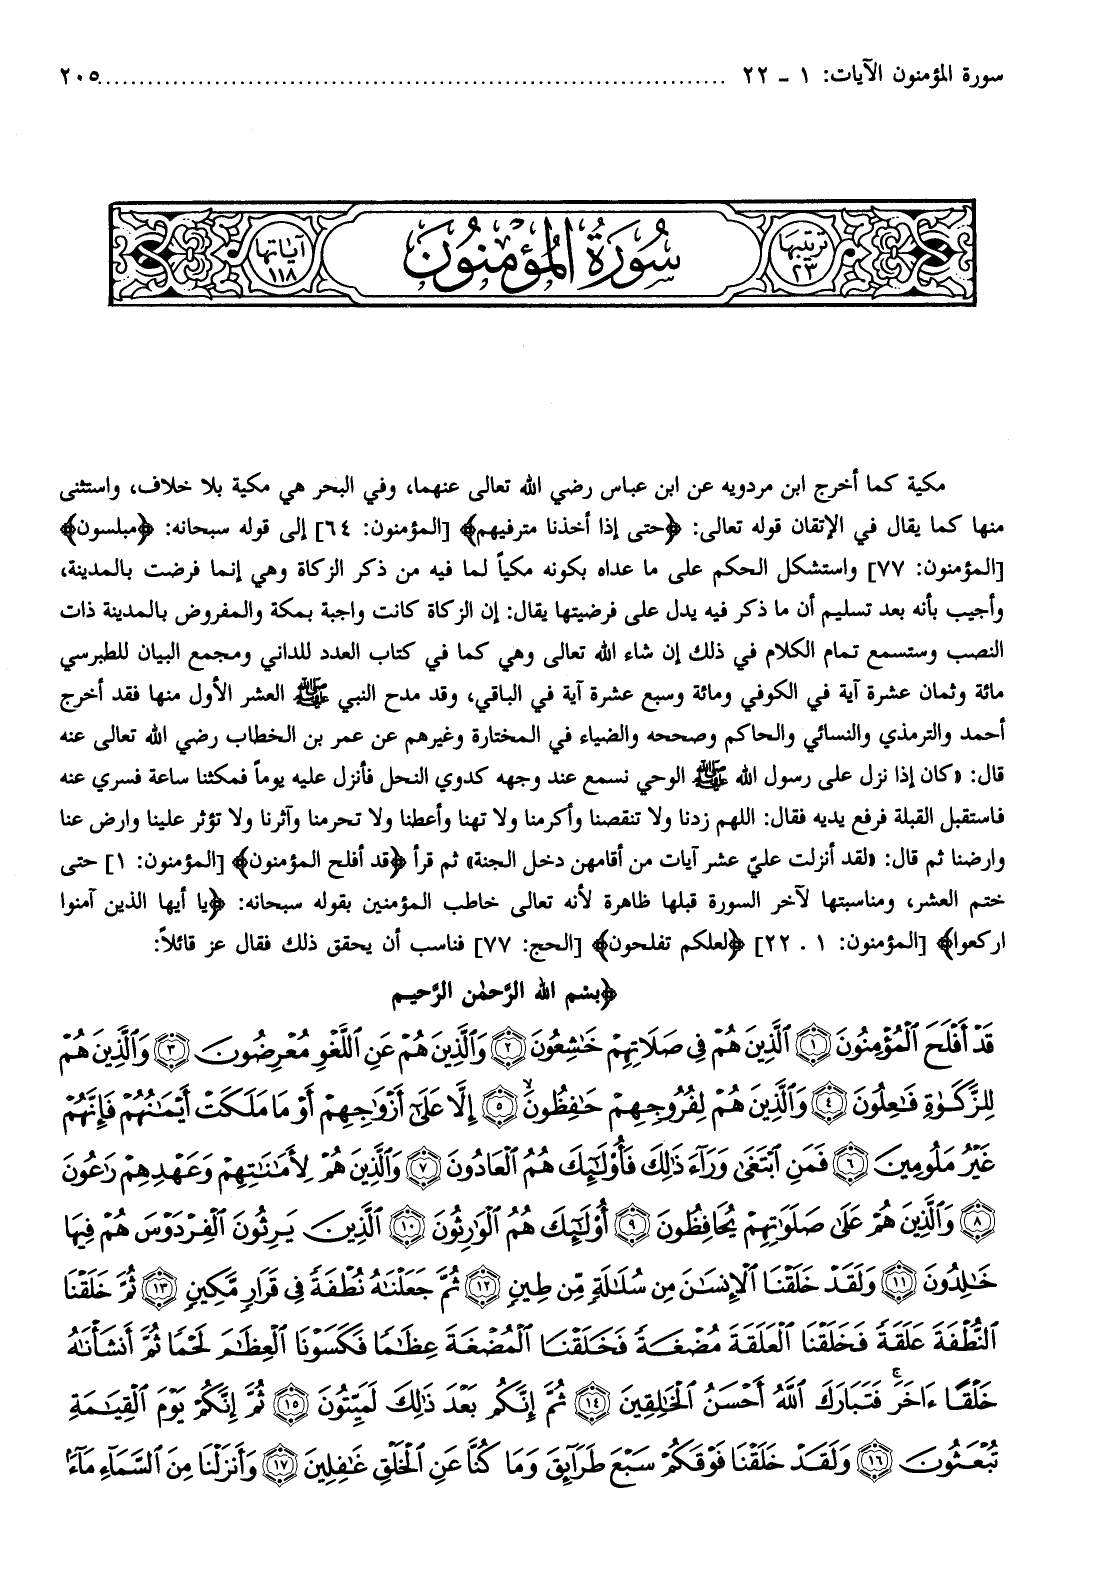 سورة المؤمنون الآيات: ١ - ٢٢ ........................................ ٢٠٥
ترتيبها ٢٣
سُورَةُ المُؤْمِنُونَ
آياتها ١١٨
مكية كما أخرج ابن مردويه عن ابن عباس رضي الله تعالى عنهما، وفي البحر هي مكية بلا خلاف، واستثنى
منها كما يقال في الإتقان قوله تعالى: ﴿حتى إذا أخذنا مترفيهم﴾ [المؤمنون: ٦٤] إلى قوله سبحانه: ﴿مبلسون﴾
[المؤمنون: ٧٧] واستشكل الحكم على ما عداه بكونه مكياً لما فيه من ذكر الزكاة وهي إنما فرضت بالمدينة،
وأجيب بأنه بعد تسليم أن ما ذكر فيه يدل على فرضيتها يقال: إن الزكاة كانت واجبة بمكة والمفروض بالمدينة ذات
النصب وستسمع تمام الكلام في ذلك إن شاء الله تعالى وهي كما في كتاب العدد للداني ومجمع البيان للطبرسي
مائة وثمان عشرة آية في الكوفي ومائة وسبع عشرة آية في الباقي، وقد مدح النبي ﷺ العشر الأول منها فقد أخرج
أحمد والترمذي والنسائي والحاكم وصححه والضياء في المختارة وغيرهم عن عمر بن الخطاب رضي الله تعالى عنه
قال: «كان إذا نزل على رسول الله ﷺ الوحي نسمع عند وجهه كدوي النحل فأنزل عليه يوماً فمكثنا ساعة فسري عنه
فاستقبل القبلة فرفع يديه فقال: اللهم زدنا ولا تنقصنا وأكرمنا ولا تهنا وأعطنا ولا تحرمنا وآثرنا ولا تؤثر علينا وارض عنا
وارضنا ثم قال: «لقد أنزلت عليّ عشر آيات من أقامهن دخل الجنة» ثم قرأ ﴿قد أفلح المؤمنون﴾ [المؤمنون: ١] حتى
ختم العشر، ومناسبتها لآخر السورة قبلها ظاهرة لأنه تعالى خاطب المؤمنين بقوله سبحانه: ﴿يا أيها الذين آمنوا
اركعوا﴾ [المؤمنون: ١ . ٢٢] ﴿لعلكم تفلحون﴾ [الحج: ٧٧] فناسب أن يحقق ذلك فقال عز قائلاً:
﴿بسْم الله الرَّحمٰن الرَّحيم
قَدْ أَفْلَحَ ٱلْمُؤْمِنُونَ ۝١ ٱلَّذِينَ هُمْ فِى صَلَاتِهِمْ خَٰشِعُونَ ۝٢ وَٱلَّذِينَ هُمْ عَنِ ٱللَّغْوِ مُعْرِضُونَ ۝٣ وَٱلَّذِينَ هُمْ
لِلزَّكَوٰةِ فَٰعِلُونَ ۝٤ وَٱلَّذِينَ هُمْ لِفُرُوجِهِمْ حَٰفِظُونَ ۝٥ إِلَّا عَلَىٰٓ أَزْوَٰجِهِمْ أَوْ مَا مَلَكَتْ أَيْمَٰنُهُمْ فَإِنَّهُمْ
غَيْرُ مَلُومِينَ ۝٦ فَمَنِ ٱبْتَغَىٰ وَرَآءَ ذَٰلِكَ فَأُو۟لَٰٓئِكَ هُمُ ٱلْعَادُونَ ۝٧ وَٱلَّذِينَ هُمْ لِأَمَٰنَٰتِهِمْ وَعَهْدِهِمْ رَٰعُونَ
۝٨ وَٱلَّذِينَ هُمْ عَلَىٰ صَلَوَٰتِهِمْ يُحَافِظُونَ ۝٩ أُو۟لَٰٓئِكَ هُمُ ٱلْوَٰرِثُونَ ۝١٠ ٱلَّذِينَ يَرِثُونَ ٱلْفِرْدَوْسَ هُمْ فِيهَا
خَٰلِدُونَ ۝١١ وَلَقَدْ خَلَقْنَا ٱلْإِنسَٰنَ مِن سُلَٰلَةٍ مِّن طِينٍ ۝١٢ ثُمَّ جَعَلْنَٰهُ نُطْفَةً فِى قَرَارٍ مَّكِينٍ ۝١٣ ثُمَّ خَلَقْنَا
ٱلنُّطْفَةَ عَلَقَةً فَخَلَقْنَا ٱلْعَلَقَةَ مُضْغَةً فَخَلَقْنَا ٱلْمُضْغَةَ عِظَٰمًا فَكَسَوْنَا ٱلْعِظَٰمَ لَحْمًا ثُمَّ أَنشَأْنَٰهُ
خَلْقًا ءَاخَرَ ۚ فَتَبَارَكَ ٱللَّهُ أَحْسَنُ ٱلْخَٰلِقِينَ ۝١٤ ثُمَّ إِنَّكُم بَعْدَ ذَٰلِكَ لَمَيِّتُونَ ۝١٥ ثُمَّ إِنَّكُمْ يَوْمَ ٱلْقِيَٰمَةِ
تُبْعَثُونَ ۝١٦ وَلَقَدْ خَلَقْنَا فَوْقَكُمْ سَبْعَ طَرَآئِقَ وَمَا كُنَّا عَنِ ٱلْخَلْقِ غَٰفِلِينَ ۝١٧ وَأَنزَلْنَا مِنَ ٱلسَّمَآءِ مَآءًۢ